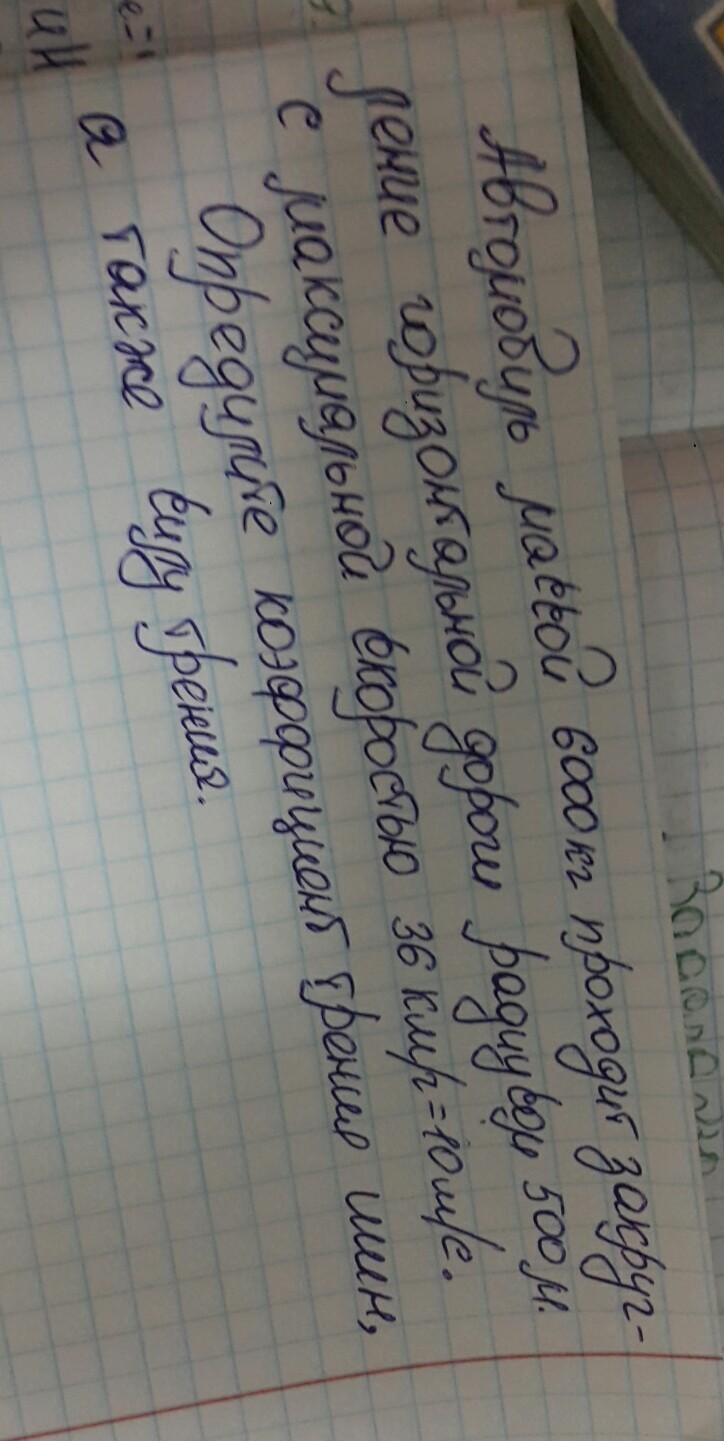 Автомобиль массой 6000 кг проходит закруг-
ление горизонтальной дороги радиусом 500 м.
с максимальной скоростью 36 км/г = 10 м/с.
Определите коэффициент трения шин,
а также силу трения.